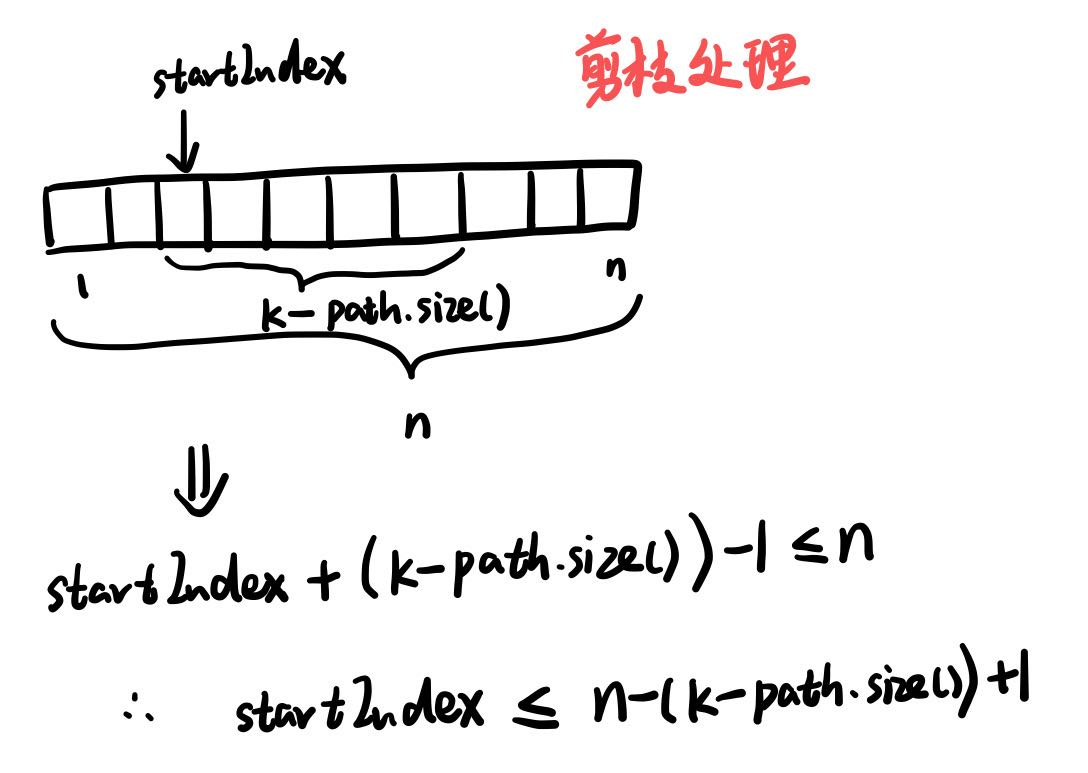 startIndex
剪枝处理
1
n
k-path.size()
n
⇓
startIndex + (k-path.size())-1 ≤ n
∴ startIndex ≤ n-(k-path.size())+1